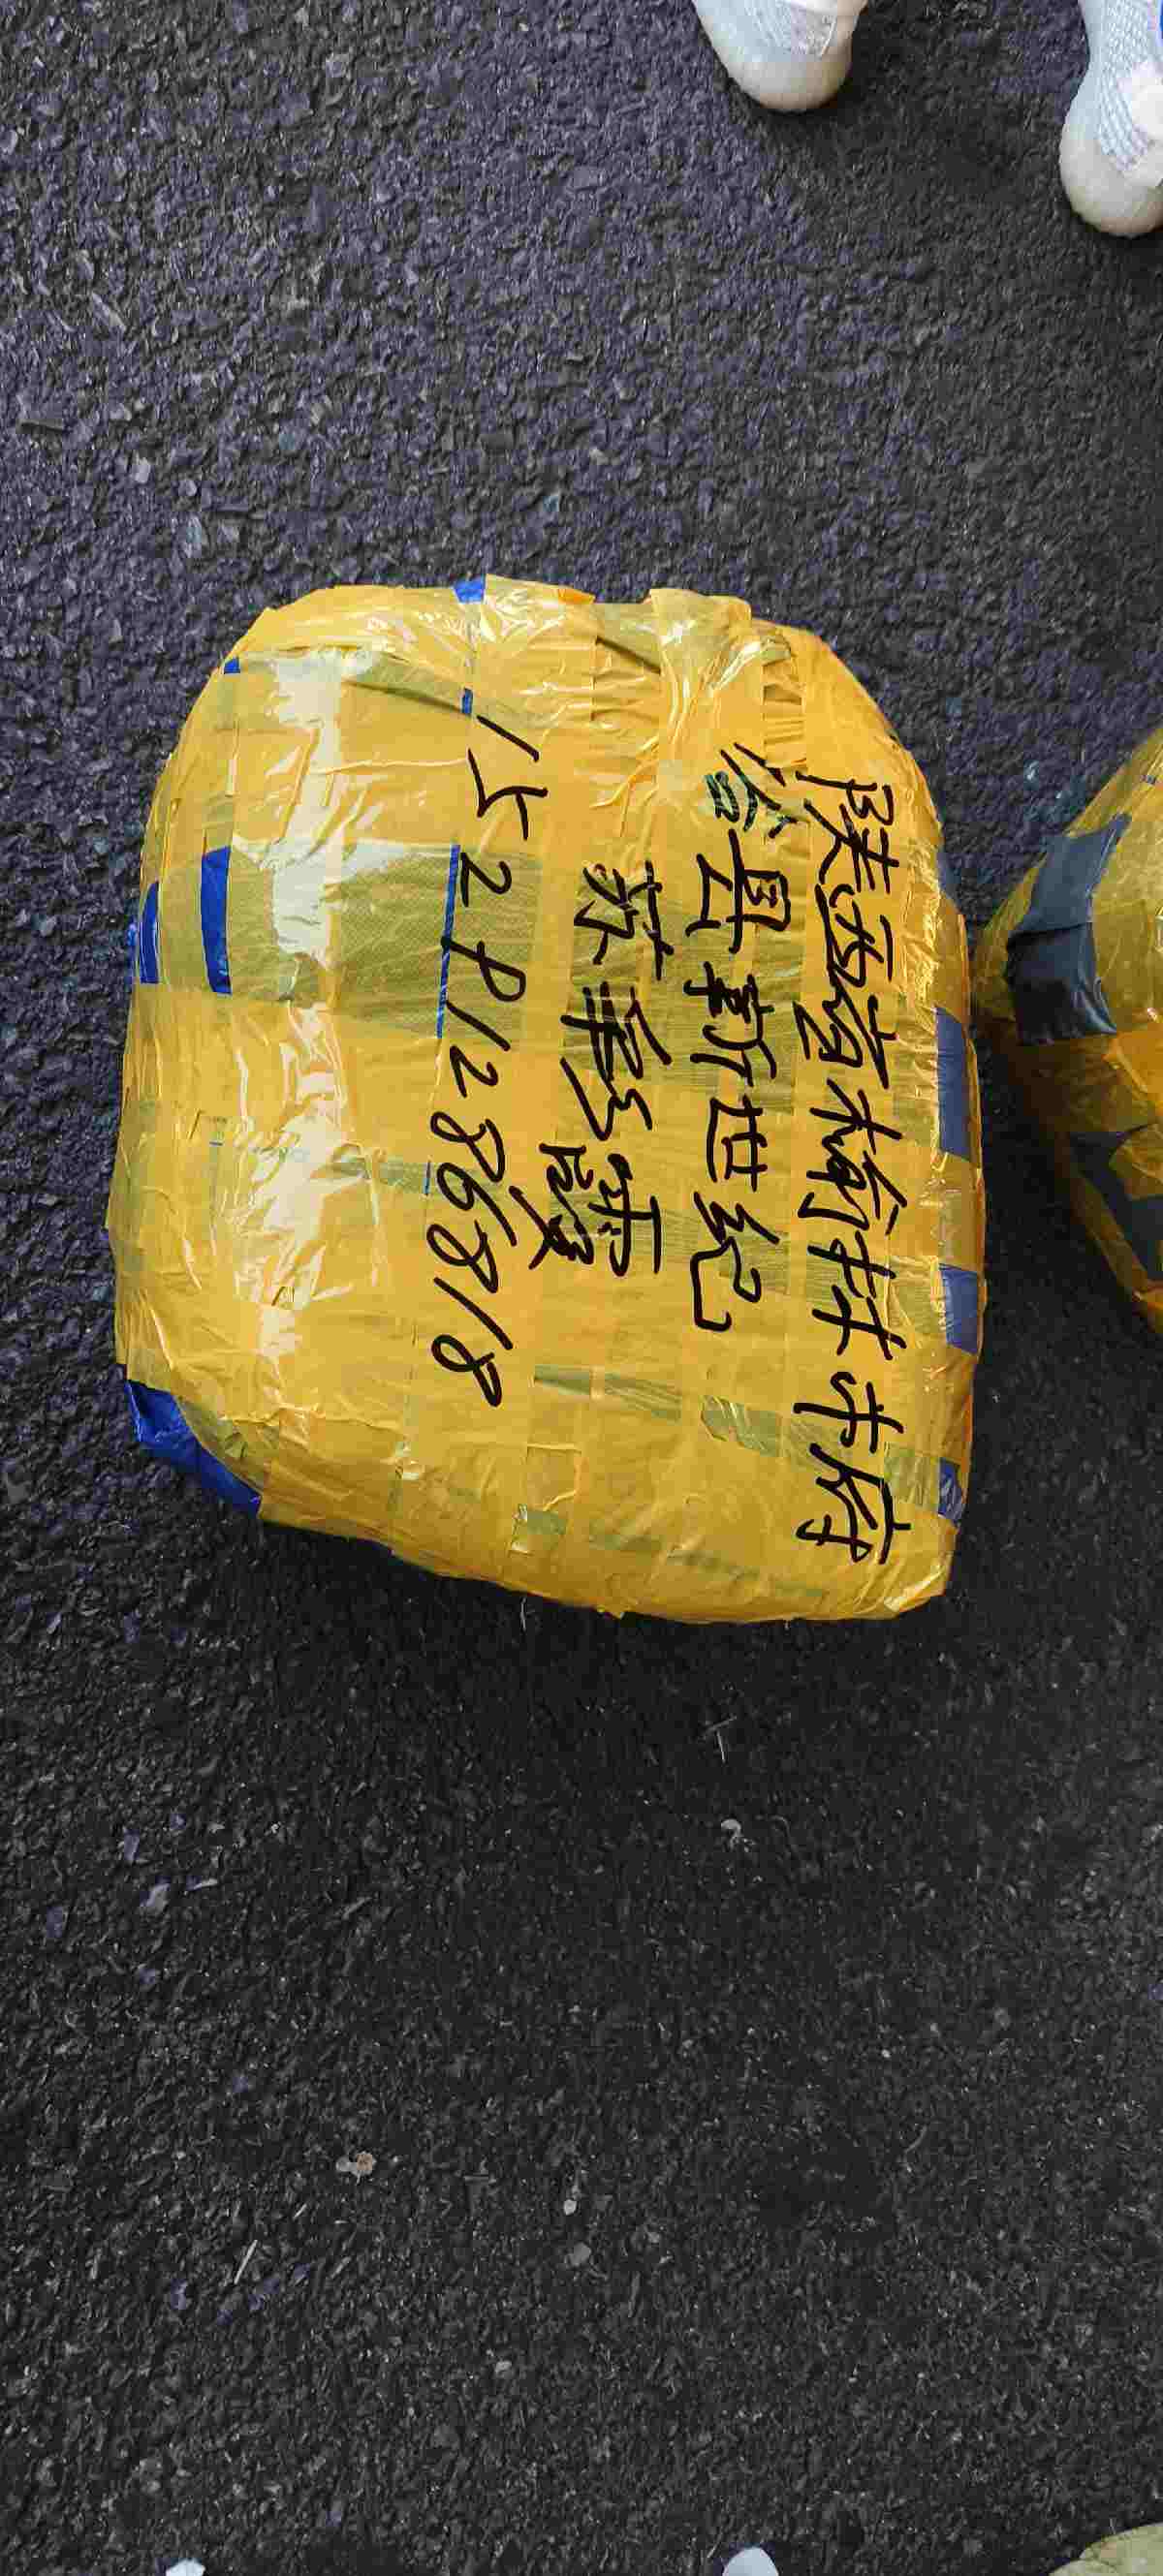 陕西省榆林市府
谷县新世纪
苏彩霞
15291286818